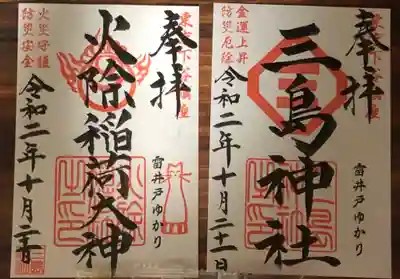 奉拝
東京下谷鎮座
火除稲荷大神
雷井戸ゆかり
火災守護
防災安全
令和二年十月
奉拝
東京下谷鎮座
三島神社
雷井戸ゆかり
金運上昇
防災厄除
令和二年十月二十一日